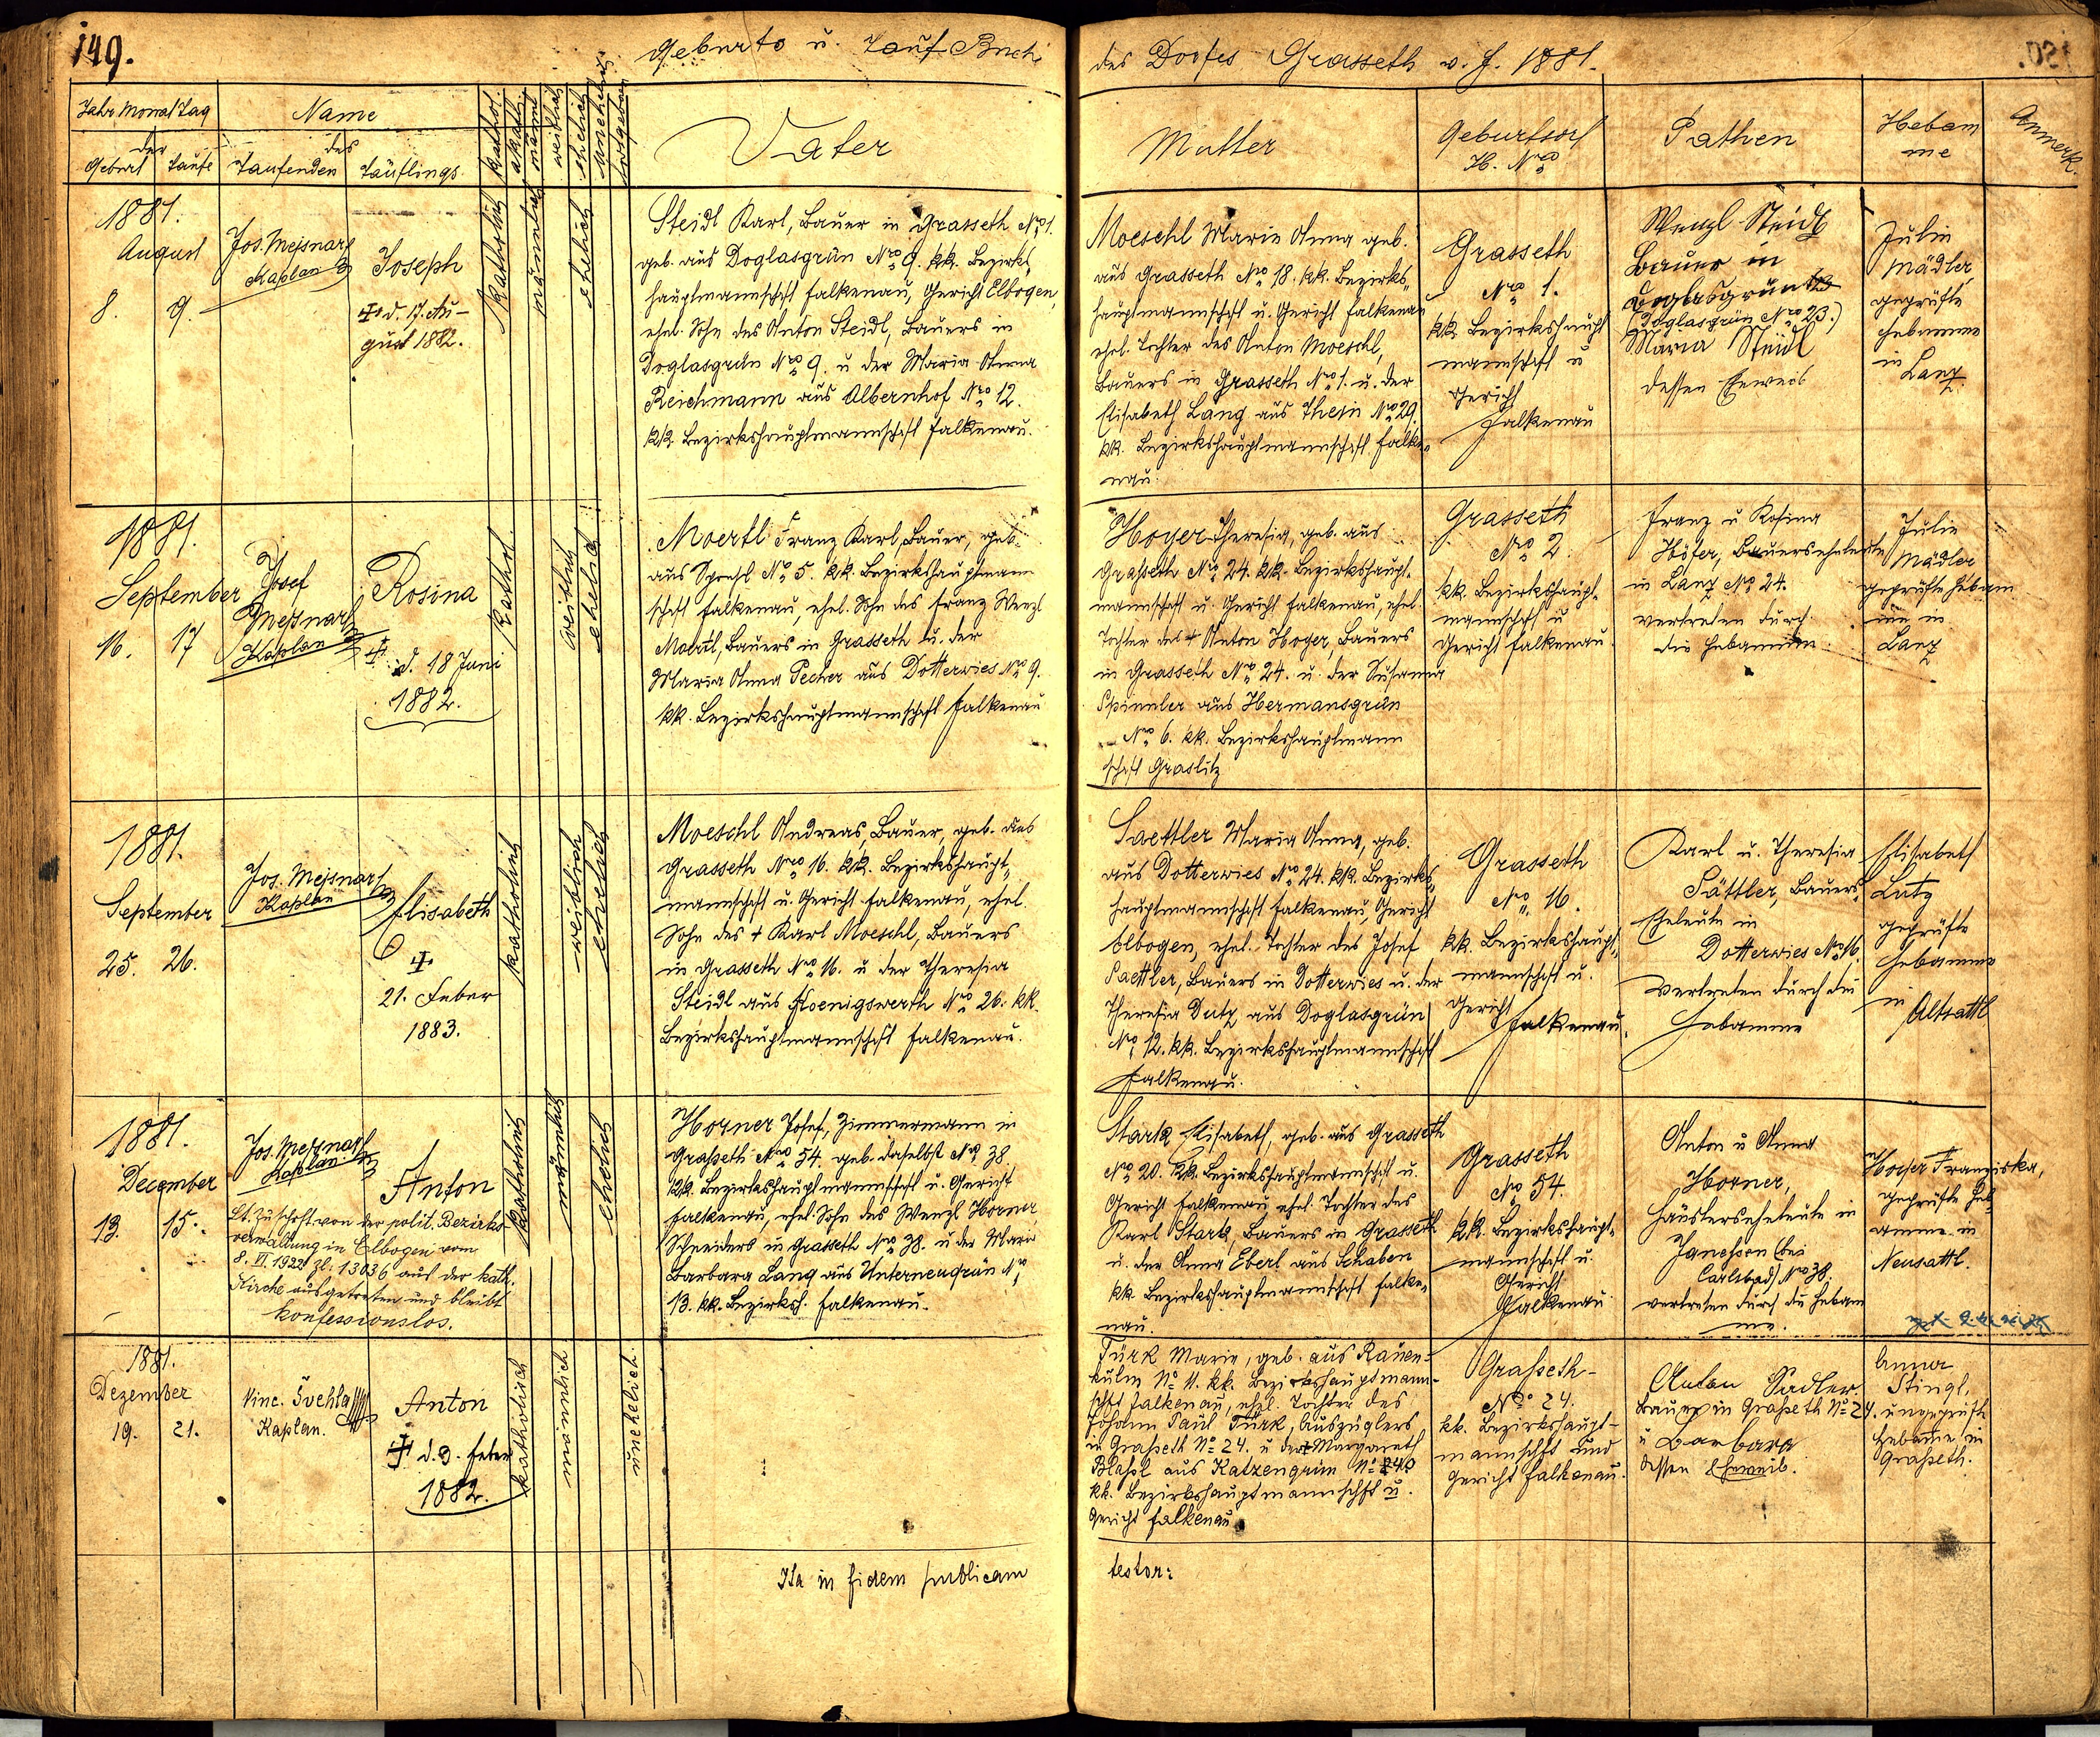 149.
Geburts u. Tauf Buch
des Dorfes Grasseth v. J. 1881.
Jahr Monat Tag
der
Geburt Taufe
Name
des
Taufenden Täuflings
kathol.
akath.
männl
weiblich
ehelich
unehelich
todtgebor
Vater
Mutter
Geburtsort
H. Nro
Pathen
Hebam
me
Anmerk.
1881.
August
8. 9.
Jos. Mejsnar
Kaplan
Joseph
d. 17. Au-
gust 1882.
katholisch
männlich
ehelich
Steidl Karl, Bauer in Grasseth Nro 1.
geb. aus Doglasgrün Nro 9. kk. Bezirks-
hauptmannschaft Falkenau, Gericht Elbogen,
ehel. Sohn des Anton Steidl, Bauers in
Doglasgrün Nro 9. u der Maria Anna
Reichmann aus Albernhof Nro 12.
kk. Bezirkshauptmannschaft Falkenau.
Moeschl Marie Anna geb.
aus Grasseth Nro 18. kk. Bezirks-
hauptmannschaft u. Gericht Falkenau
ehel. Tochter des Anton Moeschl,
Bauers in Grasseth Nro 1. u. der
Elisabeth Lang aus Thein Nro 29.
kk. Bezirkshauptmannschaft Falke-
nau.
Grasseth
Nro 1.
kk Bezirkshaupt
mannschaft u
Gericht
Falkenau
Wenzl Steidl
Bauer in
Doglasgrün
Doglasgrün Nro 23.)
Maria Steidl
dessen Eheweib
Julie
Mädler
geprüfte
Hebamme
in
Lanz.
1881.
September
16. 17
Josef
Mejsnar
Kaplan
Rosina
d. 18 Juni
1882.
kathol.
weiblich
ehelich
Moertl Franz Karl, Bauer, geb.
aus Nro 5. kk. Bezirkshauptmann
schaft Falkenau, ehel. Sohn des Franz Wenzl
Moertl, Bauers in Grasseth u. der
Maria Anna Pecher aus Dotterwies Nro 9.
kk. Bezirkshauptmannschaft Falkenau
Hoyer Theresia, geb. aus
Grasseth Nro 24. kk. Bezirkshaupt-
mannschaft u. Gericht Falkenau, ehel.
Tochter des + Anton Hoyer, Bauers
in Grasseth Nro 24. u. der Susanna
Spinnler aus Hermansgrün
Nro 6. kk. Bezirkshauptmann
schaft Graslitz
Grasseth
Nro 2.
kk. Bezirkshaupt-
mannschaft u
Gericht Falkenau.
Franz u Rosina
Höfer, Bauerseheleute
in Lanz Nro 24.
vertreten durch
die Hebamme
Julie
Mädler
geprüfte Hebam
me in
Lanz
1881.
September
25. 26.
Jos. Mejsnar
Kaplan
Elisabeth
21. Feber
1883.
katholisch
weiblich
ehelich
Moeschl Andreas, Bauer, geb. aus
Grasseth Nro 16. kk. Bezirkshaupt-
mannschaft u. Gericht Falkenau, ehel.
Sohn des + Karl Moeschl, Bauers
in Grasseth Nro 16. u der Theresia
Steidl aus Koenigswerth Nro 26. kk.
Bezirkshauptmannschaft Falkenau.
Saettler Maria Anna, geb.
aus Dotterwies Nro 24. kk. Bezirks-
hauptmannschaft Falkenau, Gericht
Elbogen, ehel. Tochter des Josef
Saettler, Bauers in Dotterwies u. der
Theresia Dutz aus Doglasgrün
Nro 12. kk. Bezirkshauptmannschaft
Falkenau.
Grasseth
Nro 16.
kk. Bezirkshaupt-
mannschaft u.
Gericht
Falkenau.
Karl u. Theresia
Sättler, Bauers
Eheleute in
Dotterwies Nro 16.
vertreten durch die
Hebamme
Elisabeth
Lutz
geprüfte
Hebamme
in
Altsattl
1881.
December
13. 15.
Jos. Mejsnar
Kaplan
Anton
Lt. Zuschrft. von der polit. Bezirks
verwaltung in Elbogen vom
8. VI. 1922 Zl. 13036 aus der kath.
Kirche ausgetreten und bleibt
konfessionslos.
katholisch
männlich
ehelich
Horner Josef, Zimmermann in
Graßeth Nro 54. geb. daselbst Nro 38
kk. Bezirkshauptmannschaft u. Gericht
Falkenau, ehel. Sohn des Wenzl Horner
Schneiders in Grasseth Nro 38. u der Maria
Barbara Lang aus Unterneugrün Nro
13. kk. Bezirksh. Falkenau.
Stark Elisabeth, geb. aus Grasseth
Nro 20. kk. Bezirkshauptmannschaft u.
Gericht Falkenau, ehel. Tochter des
Karl Stark, Bauers in Grasseth
u. der Anna Eberl aus Schaben
kk Bezirkshauptmannschaft Falke-
nau.
Grasseth
Nro 54.
kk. Bezirkshaupt-
mannschaft u.
Gericht
Falkenau
Anton u Anna
Horner,
Häuslerseheleute in
Janessen (bei
Carlsbad) Nro 38.
vertreten durch die Hebam
me.
Hoyer Franziska,
geprüfte Heb-
amme in
Neusattl.
1881.
Dezember
19. 21.
Vinc. Švehla
Kaplan.
Anton
d. 9. Feber
1882.
katholisch
männlich
unehelich.
Türk Marie, geb. aus Rauen-
kulm No 11. kk. Bezirkshauptmann-
schft Falkenau, ehel. Tochter des
Johann Paul Türk, Auszüglers
in Graßeth No 24. u der + Margareth
Blahl aus Katzengrün No
kk. Bezirkshauptmannschft u.
Gericht Falkenau
Graßeth
No 24.
kk. Bezirkshaupt-
mannschft und
Gericht Falkenau.
Anton Sadler
Bauer in Graßeth No 24.
u Barbara
dessen Eheweib.
Anna
Stingl,
ungeprüfte
Hebamme in
Graßeth.
Ita in fidem publicam
testor: